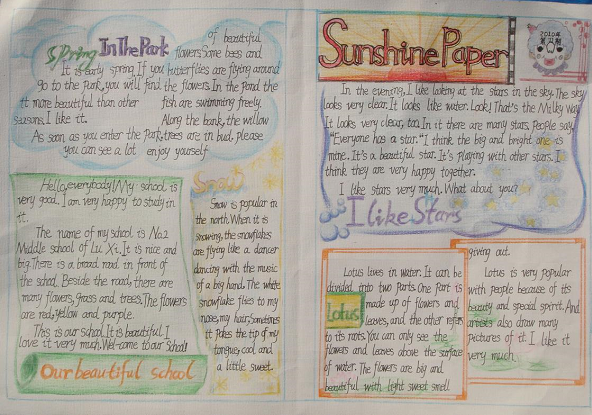 Spring In The Park
It is early spring. If you
go to the park, you will find
it more beautiful than other
seasons. I like it.
As soon as you enter the Park,
you can see a lot
of beautiful
flowers. Some bees and
butterflies are flying around
the flowers. In the pond the
fish are swimming freely.
Along the bank, the willow
trees are in bud. please
enjoy yourself
Hello, everybody! My school is
very good. I am very happy to study in
it.
The name of my school is No.2
Middle school of Lu Xi. It is nice and
big. There is a broad road in front of
the school. Beside the road, there are
many flowers, grass and trees. The flowers
are red, yellow and purple.
This is our school. It is beautiful. I
love it very much. Wel-come to our School!
Our beautiful school
Snow
Snow is popular in
the north. When it is
snowing, the snowflakes
are flying like a dancer
dancing with the music
of a big hand. The white
snowflake flies to my
nose, my hair. Sometimes
it pokes the tip of my
tongue, cool and
a little sweet.
Sunshine Paper
2010年
In the evening, I like looking at the stars in the sky. The sky
looks very clear. It looks like water. Look! That's the Milky Way
It looks very clear, too. In it there are many stars. People say,
"Everyone has a star." I think the big and bright one is
mine. It's a beautiful star. It's playing with other stars. I
think they are very happy together.
I like stars very much. What about you?
I like Stars
Lotus lives in water. It can be
divided into two parts. One part is
made up of flowers and
leaves, and the other refers
to its roots. You can only see the
flowers and leaves above the surface
of water. The flowers are big and
beautiful with light sweet smell
Lotus
giving out.
Lotus is very popular
with people because of its
beauty and special spirit. And
artists also draw many
pictures of it. I like it
very much